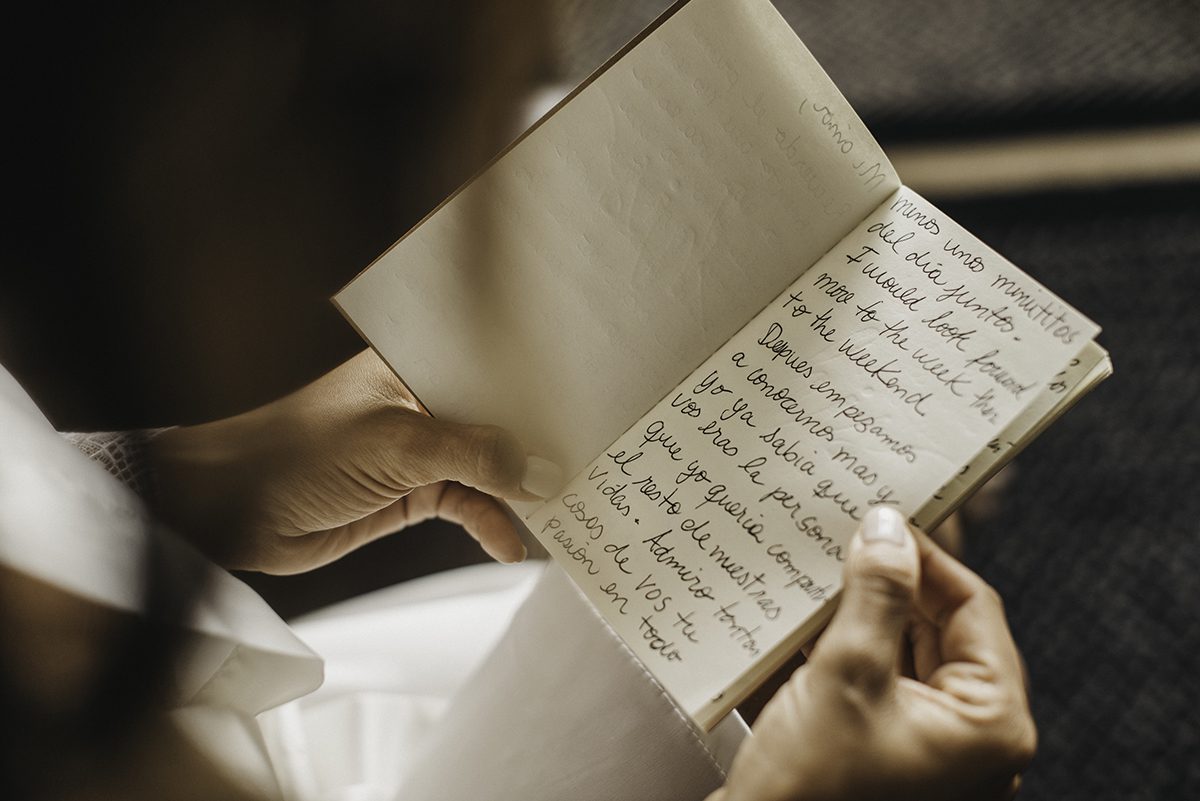 minos unos minutitos
del día juntos.
I would look forward
more to the week then
to the weekend
Depues empezamos
a conocernos mas y
yo ya sabia que
vos eras la persona
que yo queria compartir
el resto de nuestras
vidas. Admiro tantas
cosas de vos tu
pasión en todo